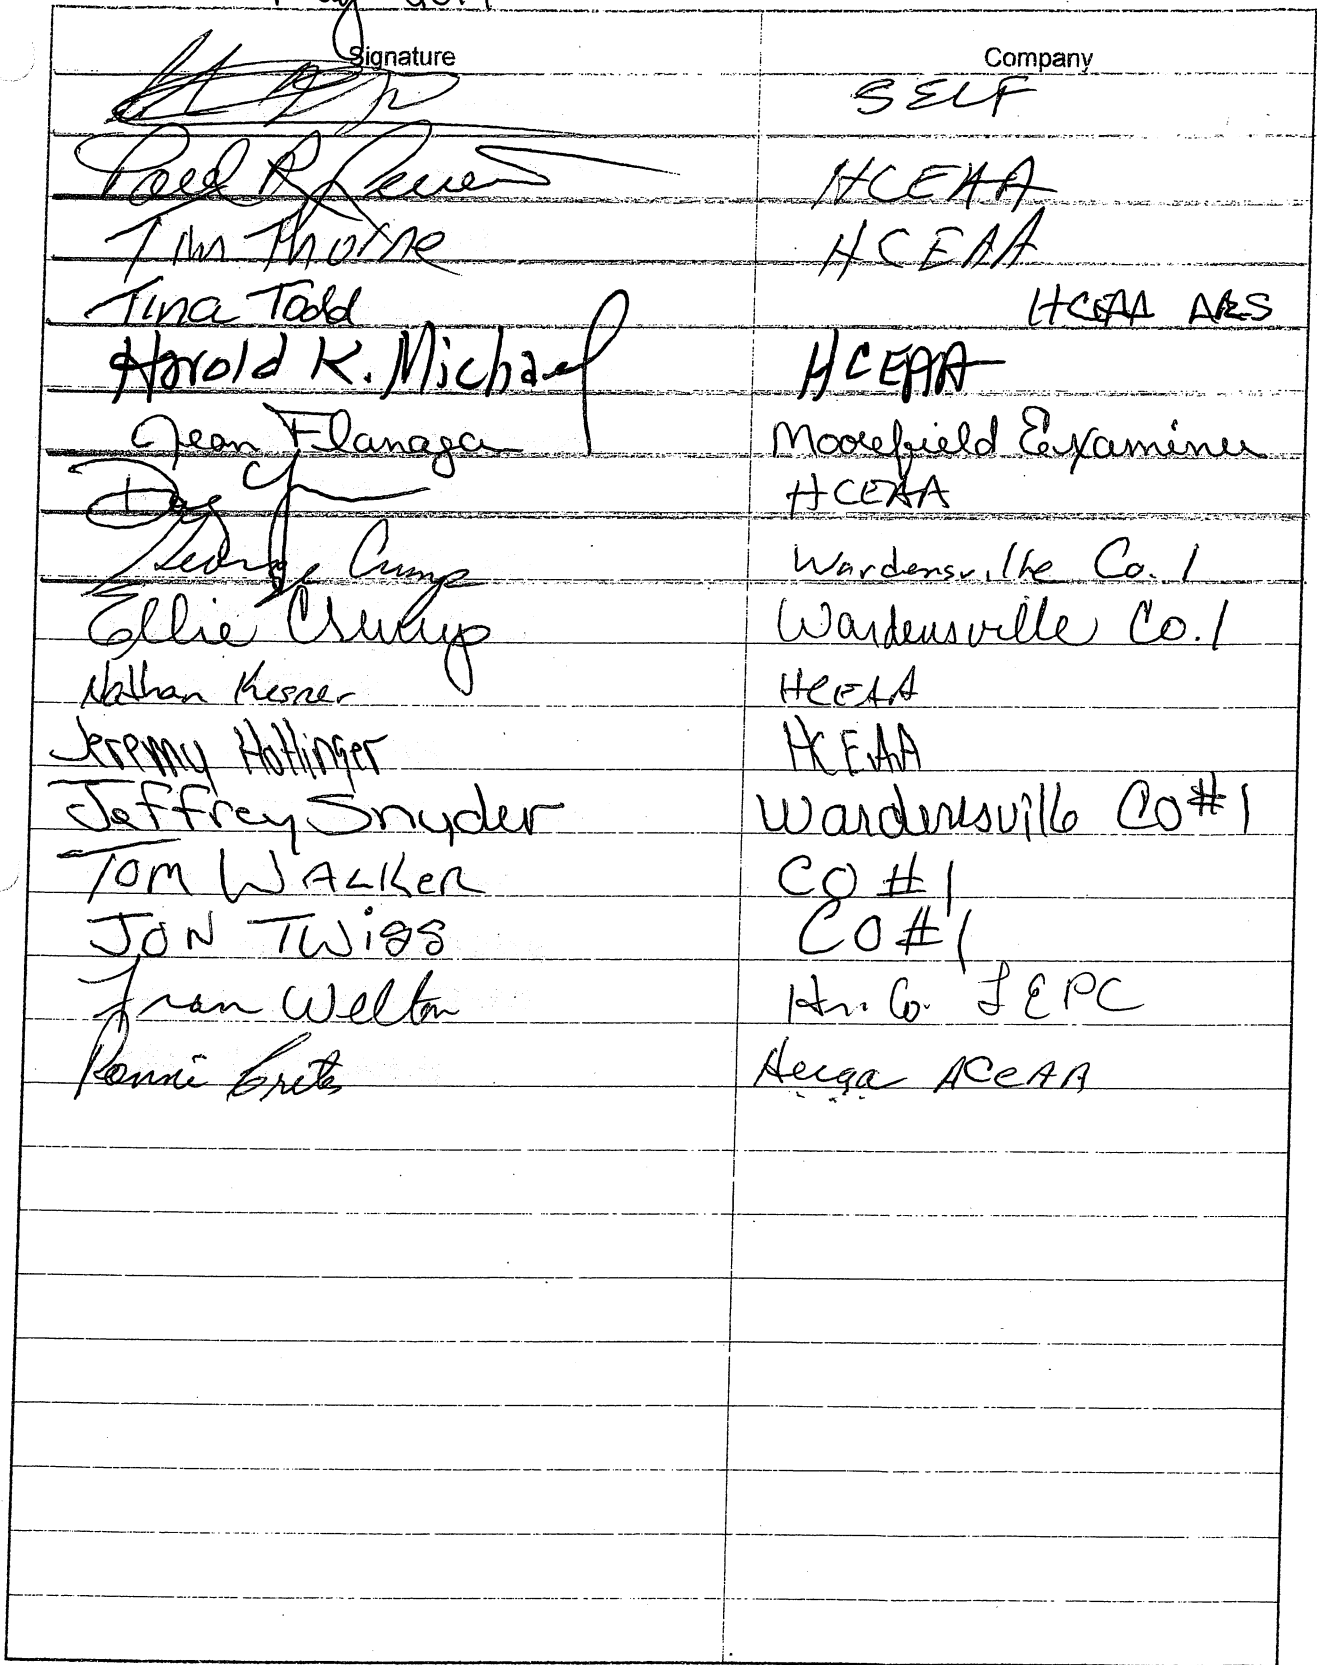 May 2014
Signature Company
SELF
Paul R. HCEAA
Tim Thorne HCEAA
Tina Todd HCEAA ARS
Harold K. Michael HCEAA
Jean Flanagan Moorefield Examiner
Doug HCEAA
George Crump Wardensville Co. 1
Ellie Crump Wardensville Co. 1
Nathan Kesner HCEAA
Jeremy Hottinger HCEAA
Jeffrey Snyder Wardensville Co#1
TOM WALKER CO #1
JON TWIGG CO #1
Fran Welton Hr. Co. LEPC
Ronnie Crites HCEAA